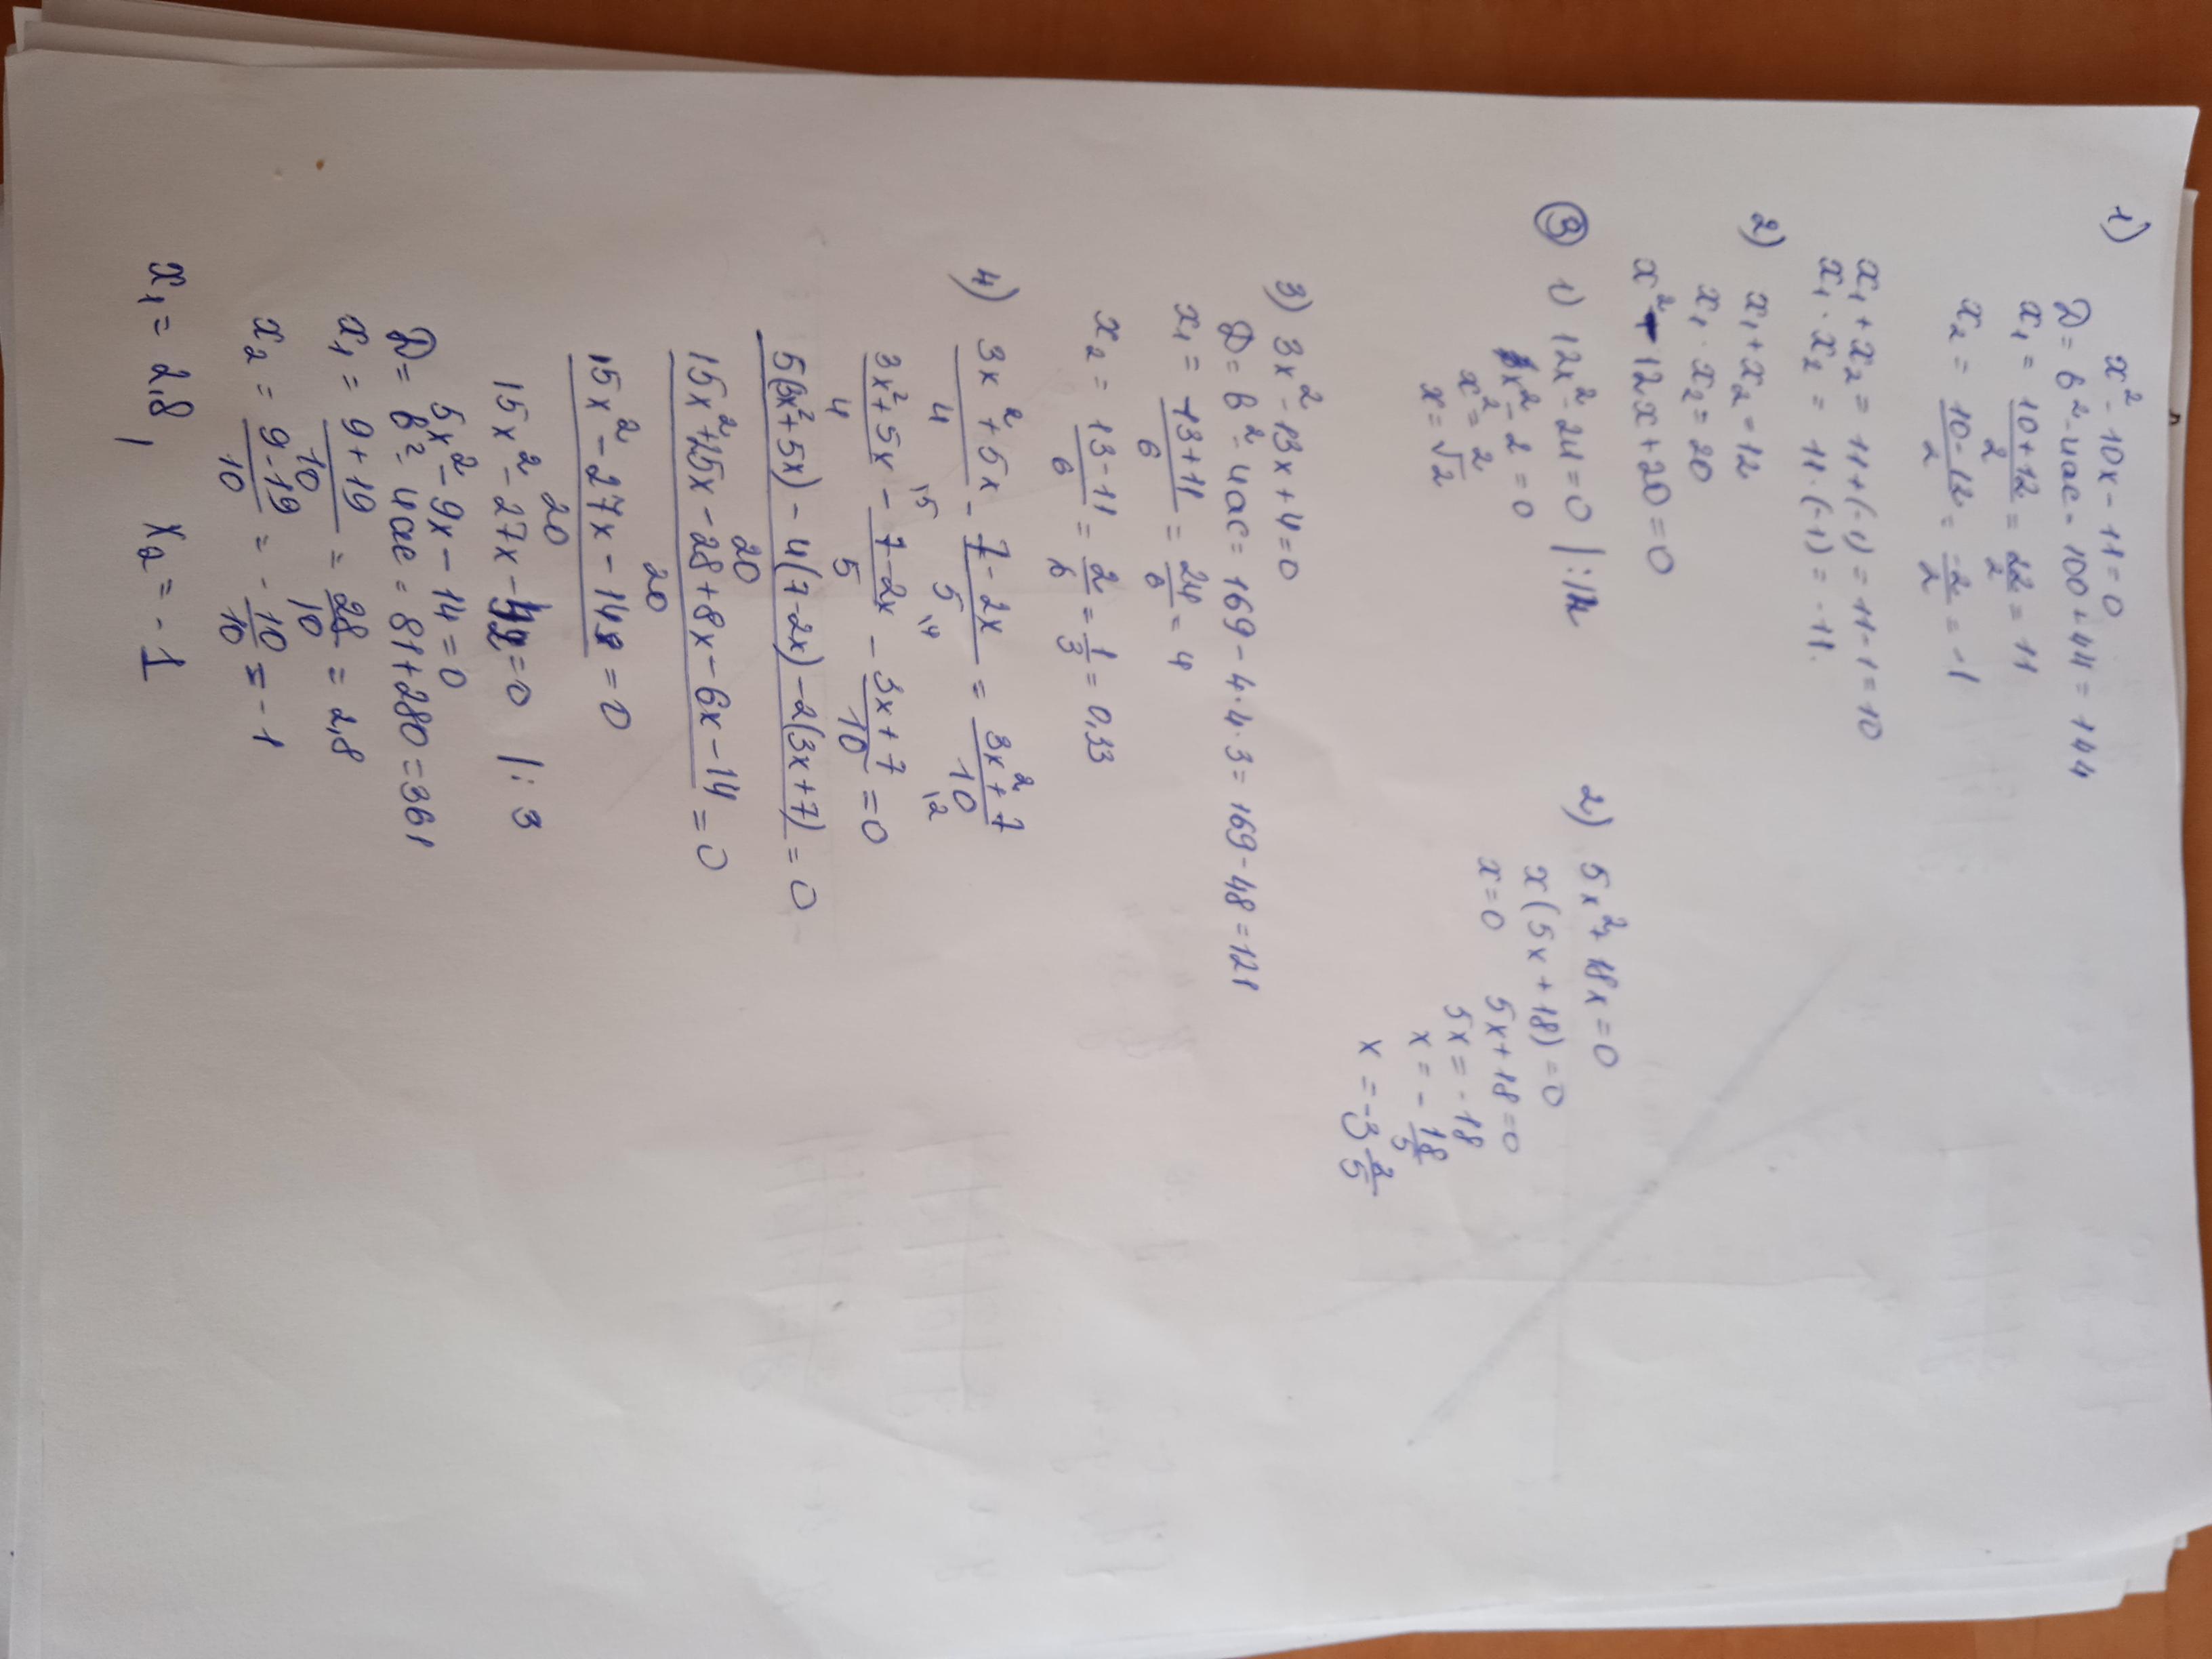 1) x² - 10x - 11 = 0
D = b² - 4ac = 100 + 44 = 144
x₁ = (10 + 12)/2 = 22/2 = 11
x₂ = (10 - 12)/2 = -2/2 = -1
x₁ + x₂ = 11 + (-1) = 11 - 1 = 10
x₁ · x₂ = 11 · (-1) = -11.
2) x₁ + x₂ = 12
x₁ · x₂ = 20
x² - 12x + 20 = 0
③ 1) 12x² - 24 = 0 |:12
x² - 2 = 0
x² = 2
x = √2
2) 5x² + 18x = 0
x(5x + 18) = 0
x = 0 5x + 18 = 0
5x = -18
x = -18/5
x = -3 2/5
3) 3x² - 13x + 4 = 0
D = b² - 4ac = 169 - 4·4·3 = 169 - 48 = 121
x₁ = (13 + 11)/6 = 24/6 = 4
x₂ = (13 - 11)/6 = 2/6 = 1/3 = 0,33
4) (3x² + 5x)/4 - (7 - 2x)/5 = (3x² + 7)/10
(3x² + 5x)/4 - (7 - 2x)/5 - (3x + 7)/10 = 0
(5(3x² + 5x) - 4(7 - 2x) - 2(3x + 7))/20 = 0
(15x² + 25x - 28 + 8x - 6x - 14)/20 = 0
(15x² - 27x - 142)/20 = 0
15x² - 27x - 42 = 0 |: 3
5x² - 9x - 14 = 0
D = b² - 4ac = 81 + 280 = 361
x₁ = (9 + 19)/10 = 28/10 = 2,8
x₂ = (9 - 19)/10 = -10/10 = -1
x₁ = 2,8, x₂ = -1